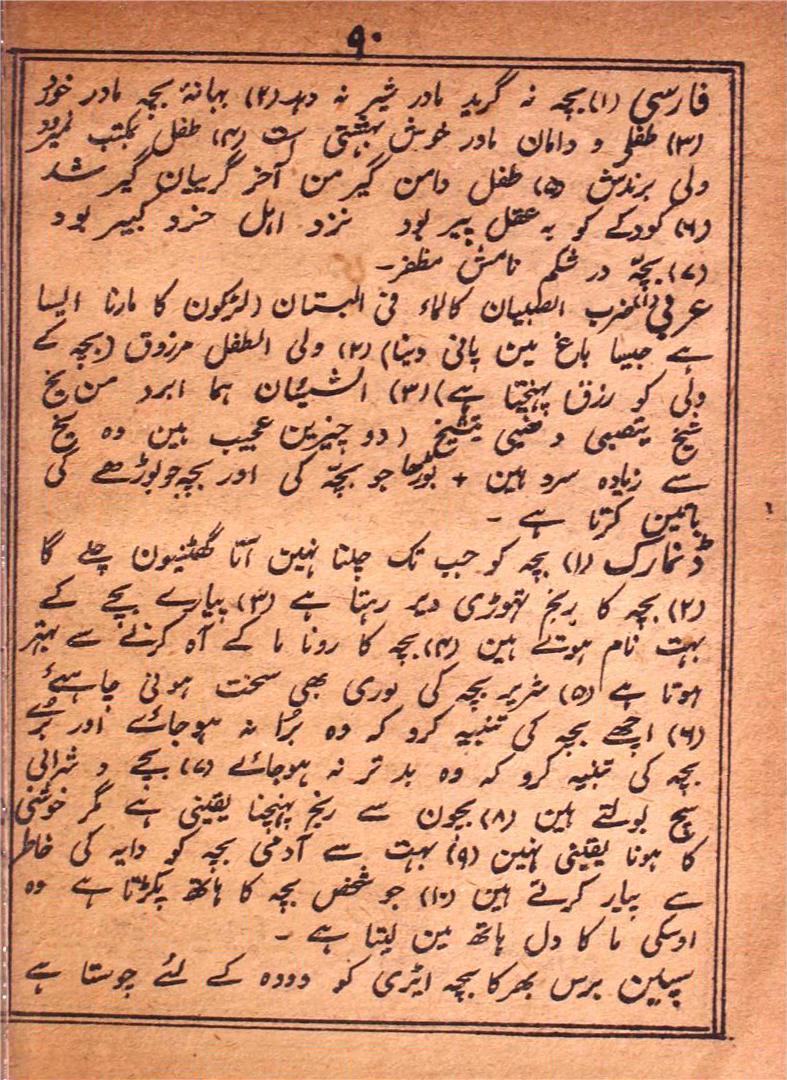 ۹۰
فارسی (۱) بچہ نہ گرید مادر شیر نہ دہد (۲) بہانۂ بچہ مادر خورد
(۳) طفلی و دامان مادر خوش بہشتی است (۴) طفل بمکتب نمیرود
ولی برندش (۵) طفل دامن گیر من آخر گریبان گیر شد
(۶) کودکے کو بہ عقل پیر بود نزد اہل خرد کبیر بود
(۷) بچہّ در شکم نامش مظفر۔
عربی (۱) الضرب الصبیان کالماء فی البستان (لڑکون کا مارنا ایسا
ہے جیسا باغ مین پانی دینا) (۲) ولی الطفل مرزوق (بچہ کے
ولی کو رزق پہنچتا ہے) (۳) الشیئان ہما ابرد من یخ
شیخ یتصبی و صبی یتشیخ (دو چیزین عجیب ہین وہ یخ
سے زیادہ سرد ہین + بوڑھا جو بچہّ کی اور بچہ جو بوڑھے کی
باتین کرتا ہے ۔
ڈنمارک (۱) بچہ کو جب تک چلنا نہین آتا گھٹنیون چلے گا
(۲) بچہ کا رنج تھوڑی دیر رہتا ہے (۳) پیارے بچے کے
بہت نام ہوتے ہین (۴) بچہ کا رونا ما کے آہ کرنے سے بہتر
ہوتا ہے (۵) شریر بچہ کی لوری بھی سخت ہونی چاہئے
(۶) اچھے بچہ کی تنبیہ کرو کہ وہ بُرا نہ ہوجائے اور بُرے
بچہ کی تنبیہ کرو کہ وہ بد تر نہ ہوجائے (۷) بچے و شرابی
سچ بولتے ہین (۸) بچون سے رنج پہنچنا یقینی ہے مگر خوشی
کا ہونا یقینی نہین (۹) بہت سے آدمی بچہ کو دایہ کی خاطر
سے پیار کرتے ہین (۱۰) جو شخص بچہ کا ہاتھ پکڑتا ہے وہ
اوسکی ما کا دل ہاتھ مین لیتا ہے ۔
سپلین برس بھر کا بچہ ایڑی کو دودہ کے لئے چوستا ہے